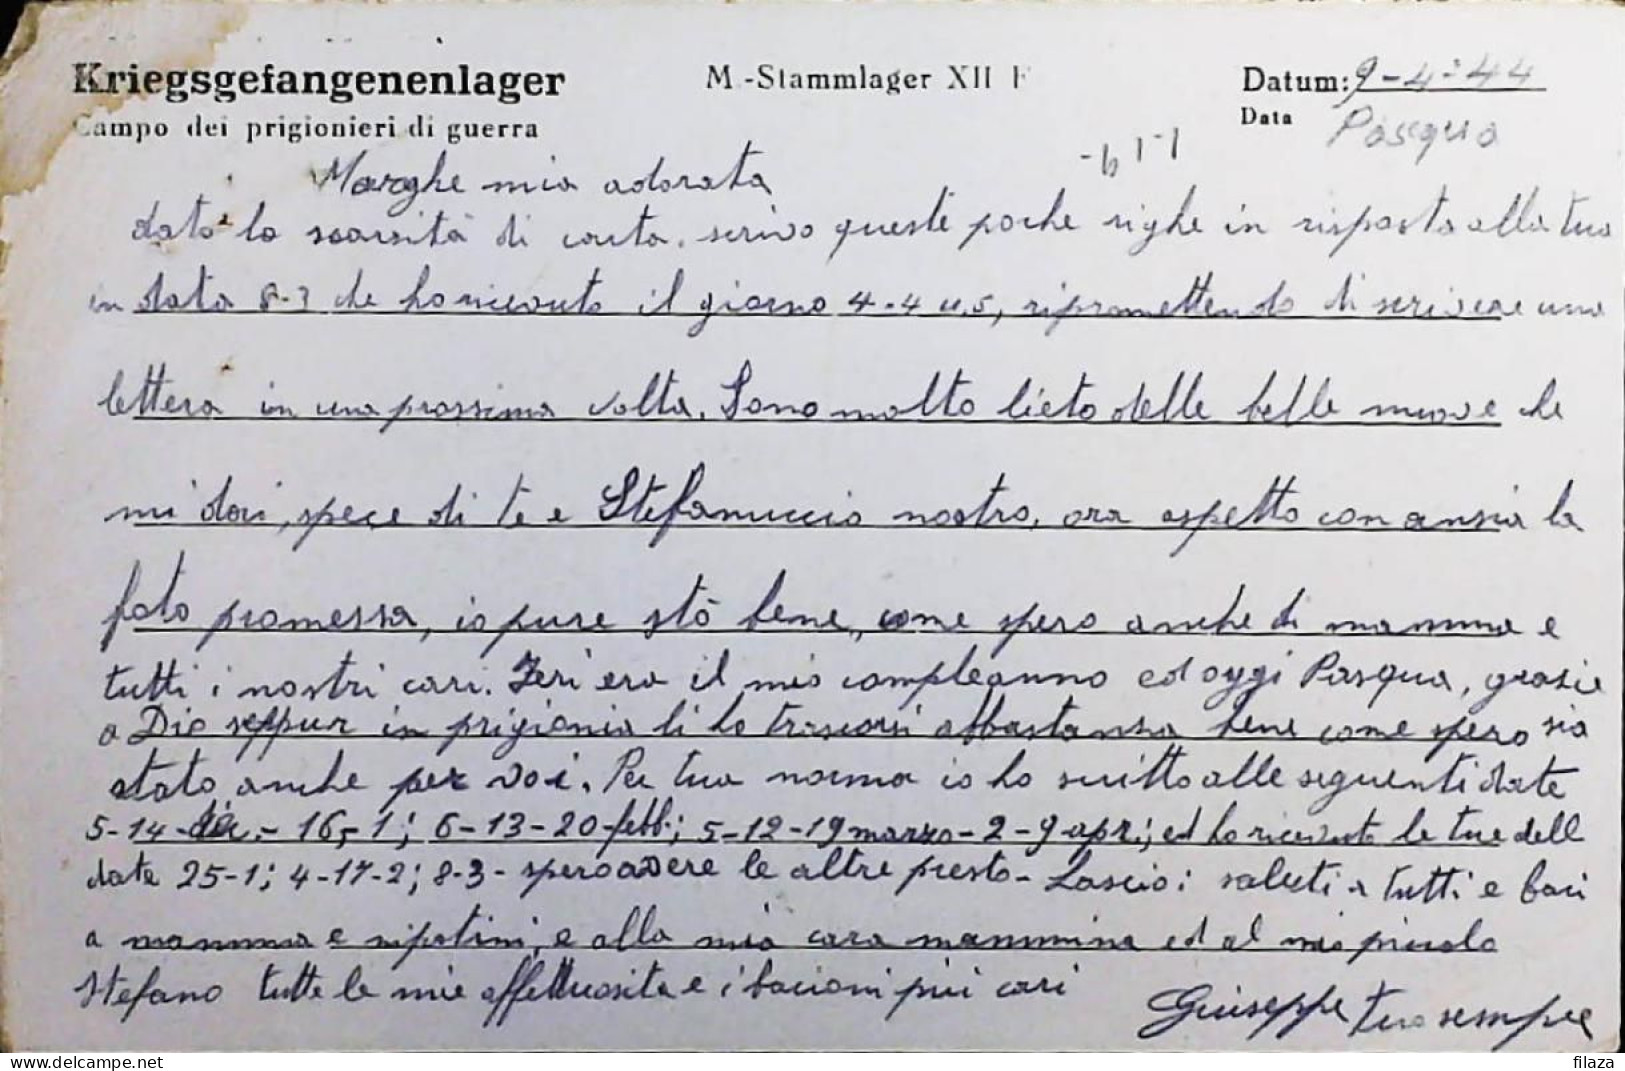 Kriegsgefangenenlager M.-Stammlager XII F Datum: 9-4-44
Campo dei prigionieri di guerra Data Pasqua
Marghe mia adorata
data la scarsità di carta, scrivo queste poche righe in risposta alla tua
in data 8-3 che ho ricevuto il giorno 4-4 u.s, ripromettendo di scrivere una
lettera in una prossima volta. Sono molto lieto delle belle nuove che
mi dai, spece di te e Stefanuccio nostro, ora aspetto con ansia la
foto promessa, io pure stò bene, come spero anche di mamma e
tutti i nostri cari. Ieri era il mio compleanno ed oggi Pasqua, grazie
a Dio seppur in prigionia li ho trascorsi abbastanza bene come spero sia
stato anche per voi. Per tua norma io ho scritto alle seguenti date
5-14-16-1; 6-13-20-febb.; 5-12-19 marzo-2-9 apr.; ed ho ricevuto le tue dell
date 25-1; 4-17-2; 8-3- spero avere le altre presto- Lascio i saluti a tutti e baci
a mamma e nipotini, e alla mia cara mammina ed al mio piccolo
Stefano tutte le mie affettuosita e i bacioni più cari
Giuseppe tuo sempre